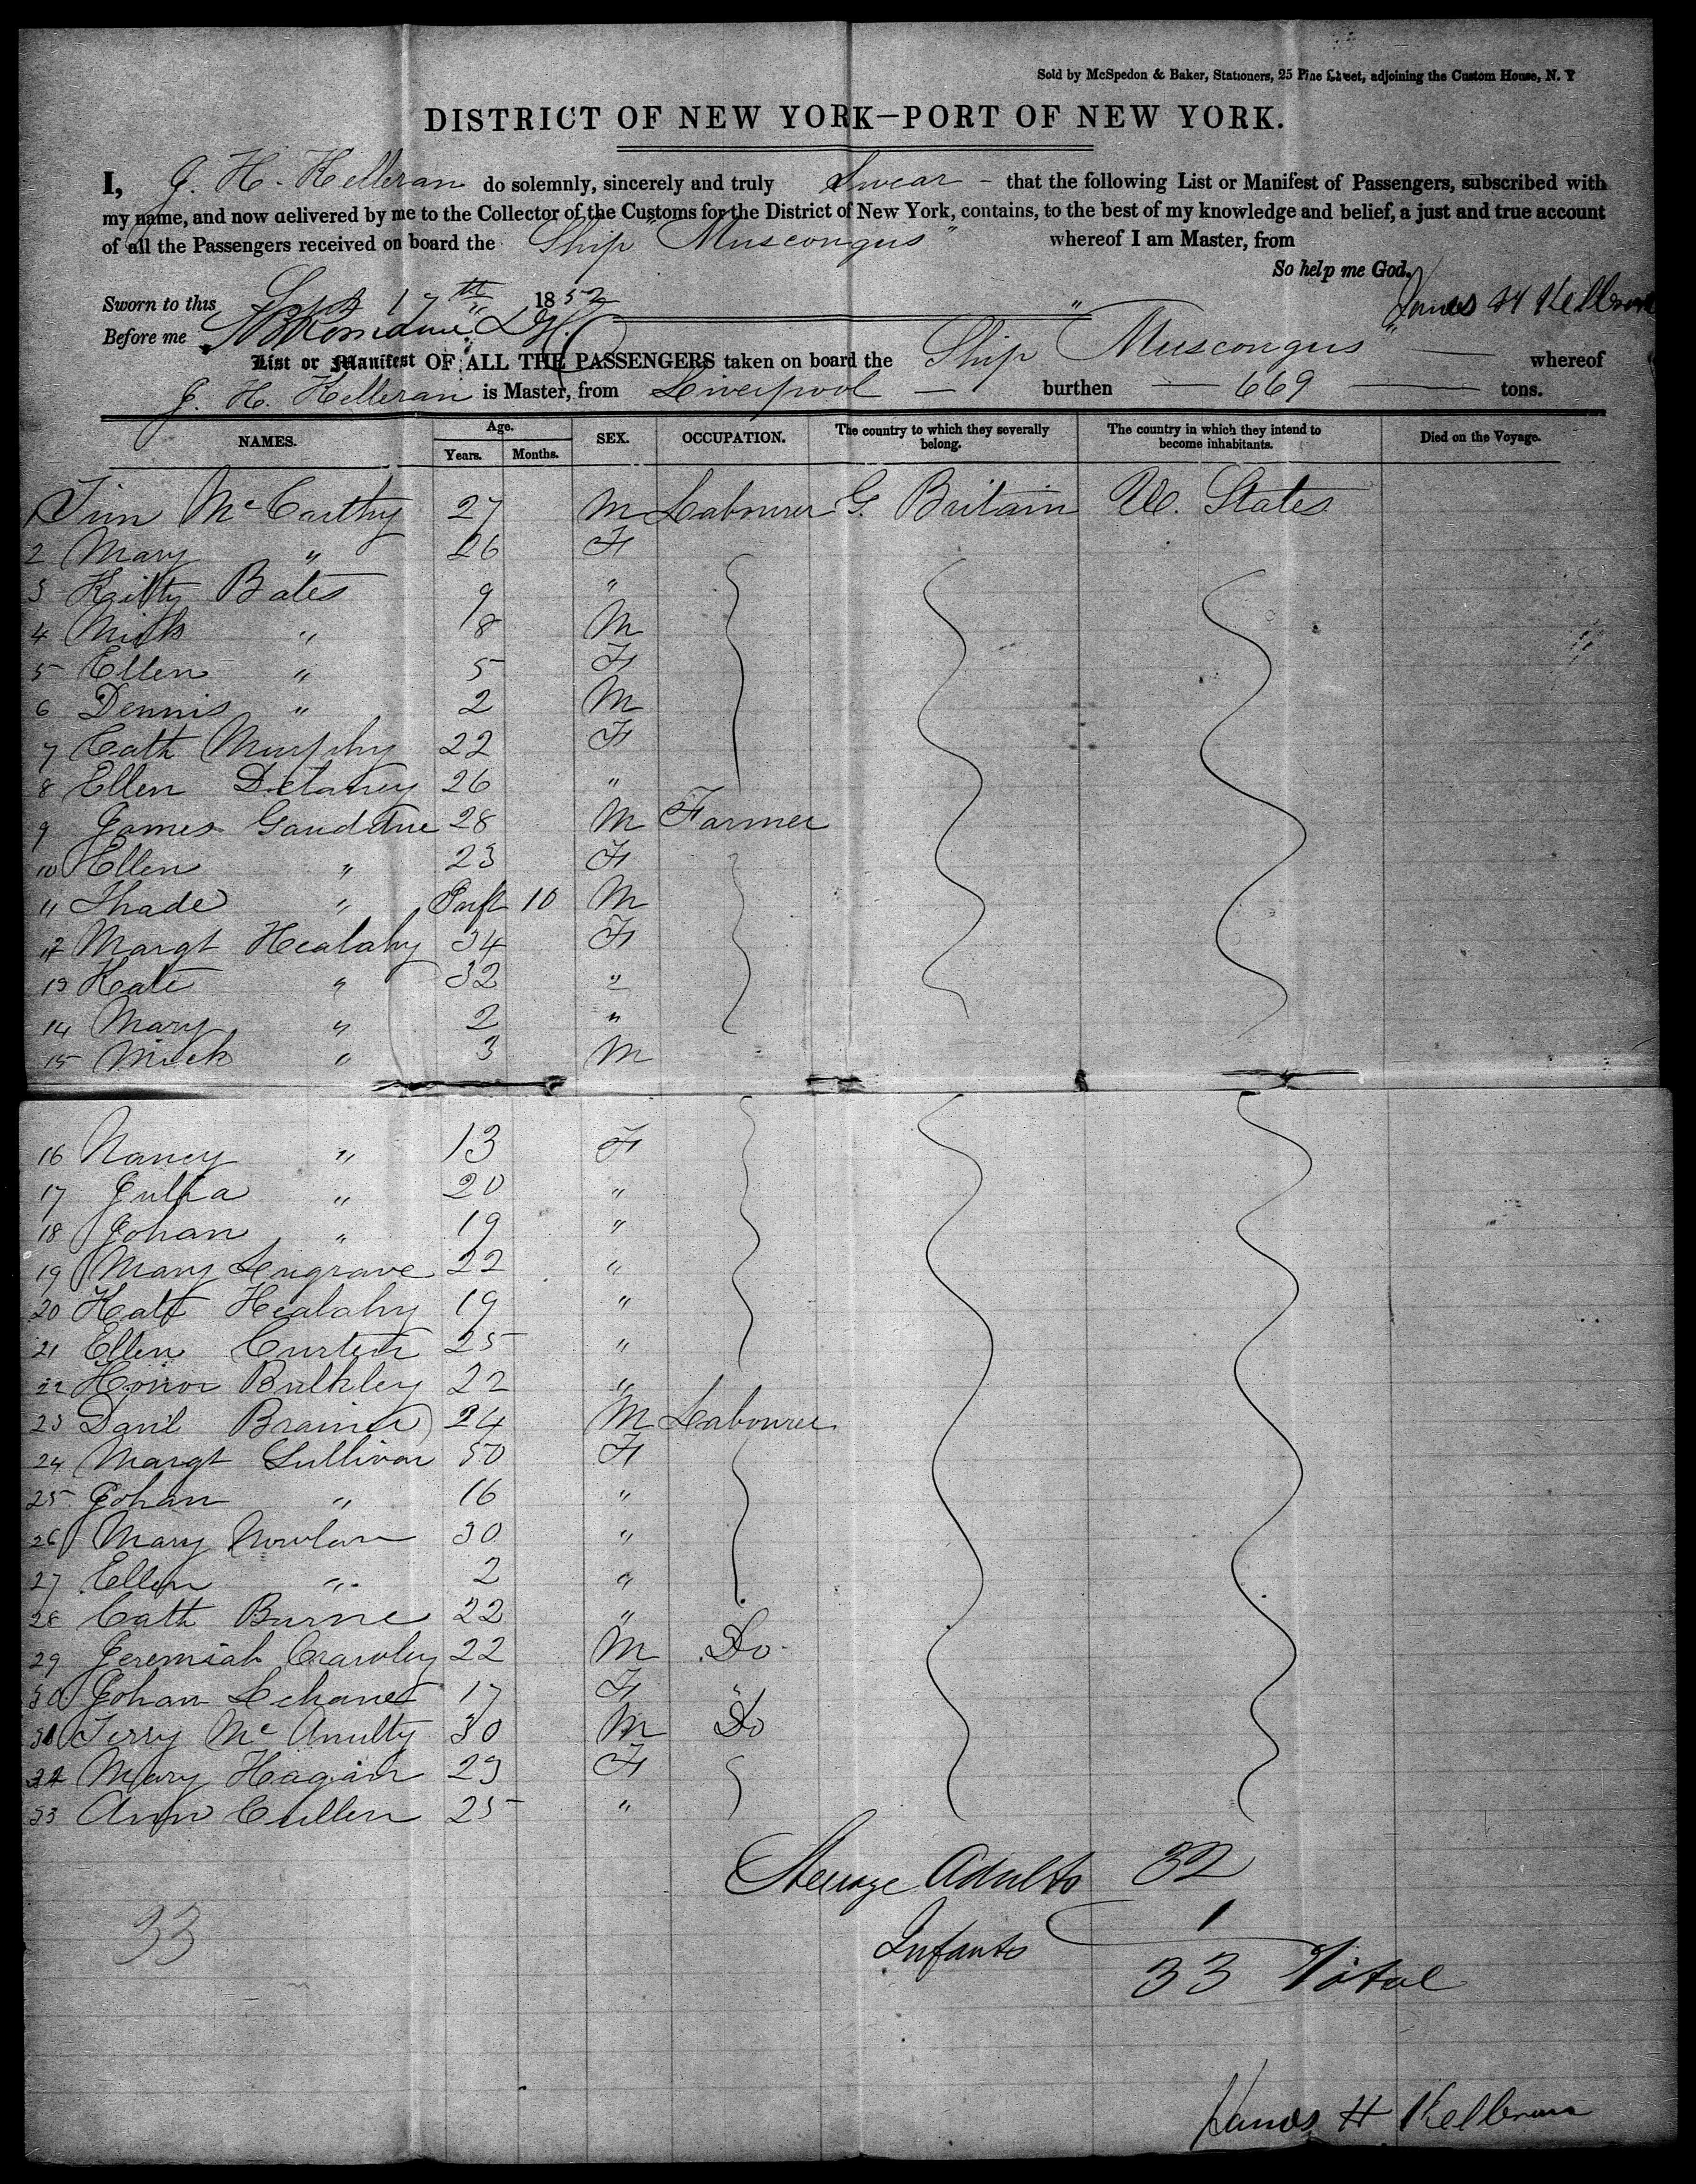 Sold by McSpedon & Baker, Stationers, 25 Pine Street, adjoining the Custom House, N. Y
DISTRICT OF NEW YORK—PORT OF NEW YORK.
I, J. H. Kelleran do solemnly, sincerely and truly Swear - that the following List or Manifest of Passengers, subscribed with
my name, and now delivered by me to the Collector of the Customs for the District of New York, contains, to the best of my knowledge and belief, a just and true account
of all the Passengers received on board the Ship "Muscongus" whereof I am Master, from
So help me God.
Sworn to this Sept 17th 1852 James H Kelleran
Before me
List or Manifest OF ALL THE PASSENGERS taken on board the Ship "Muscongus" whereof
J. H. Kelleran is Master, from Liverpool — burthen — 669 — tons.
NAMES. Age. Years. Months. SEX. OCCUPATION. The country to which they severally belong. The country in which they intend to become inhabitants. Died on the Voyage.
Tim McCarthy 27 M Labourer G. Britain U. States
2 Mary " 26 F
3 Kitty Bates 9 "
4 Mick " 8 M
5 Ellen " 5 F
6 Dennis " 2 M
7 Cath Murphy 22 F
8 Ellen Delaney 26 "
9 James 28 M Farmer
10 Ellen " 23 F
11 Thade " Inft 10 M
12 Margt Healahy 34 F
13 Kate " 32 "
14 Mary " 2 "
15 Mick " 3 M
16 Nancy " 13 F
17 Julia " 20 "
18 Johan " 19 "
19 Mary 22 "
20 Kate Healahy 19 "
21 Ellen Curtin 25 "
22 Honor Bulkley 22 "
23 Danl 24 M Labourer
24 Margt Sullivan 50 F
25 Johan " 16 "
26 Mary Nowlan 30 "
27 Ellen " 2 "
28 Cath Burne 22 "
29 Jeremiah Crawley 22 M Do
30 Johan 17 F "
31 Terry McAnulty 30 M Do
32 Mary Hagan 23 F
33 Ann Cullen 25 "
Steerage Adults 32
Infants 1
33 33 Total
James H Kelleran